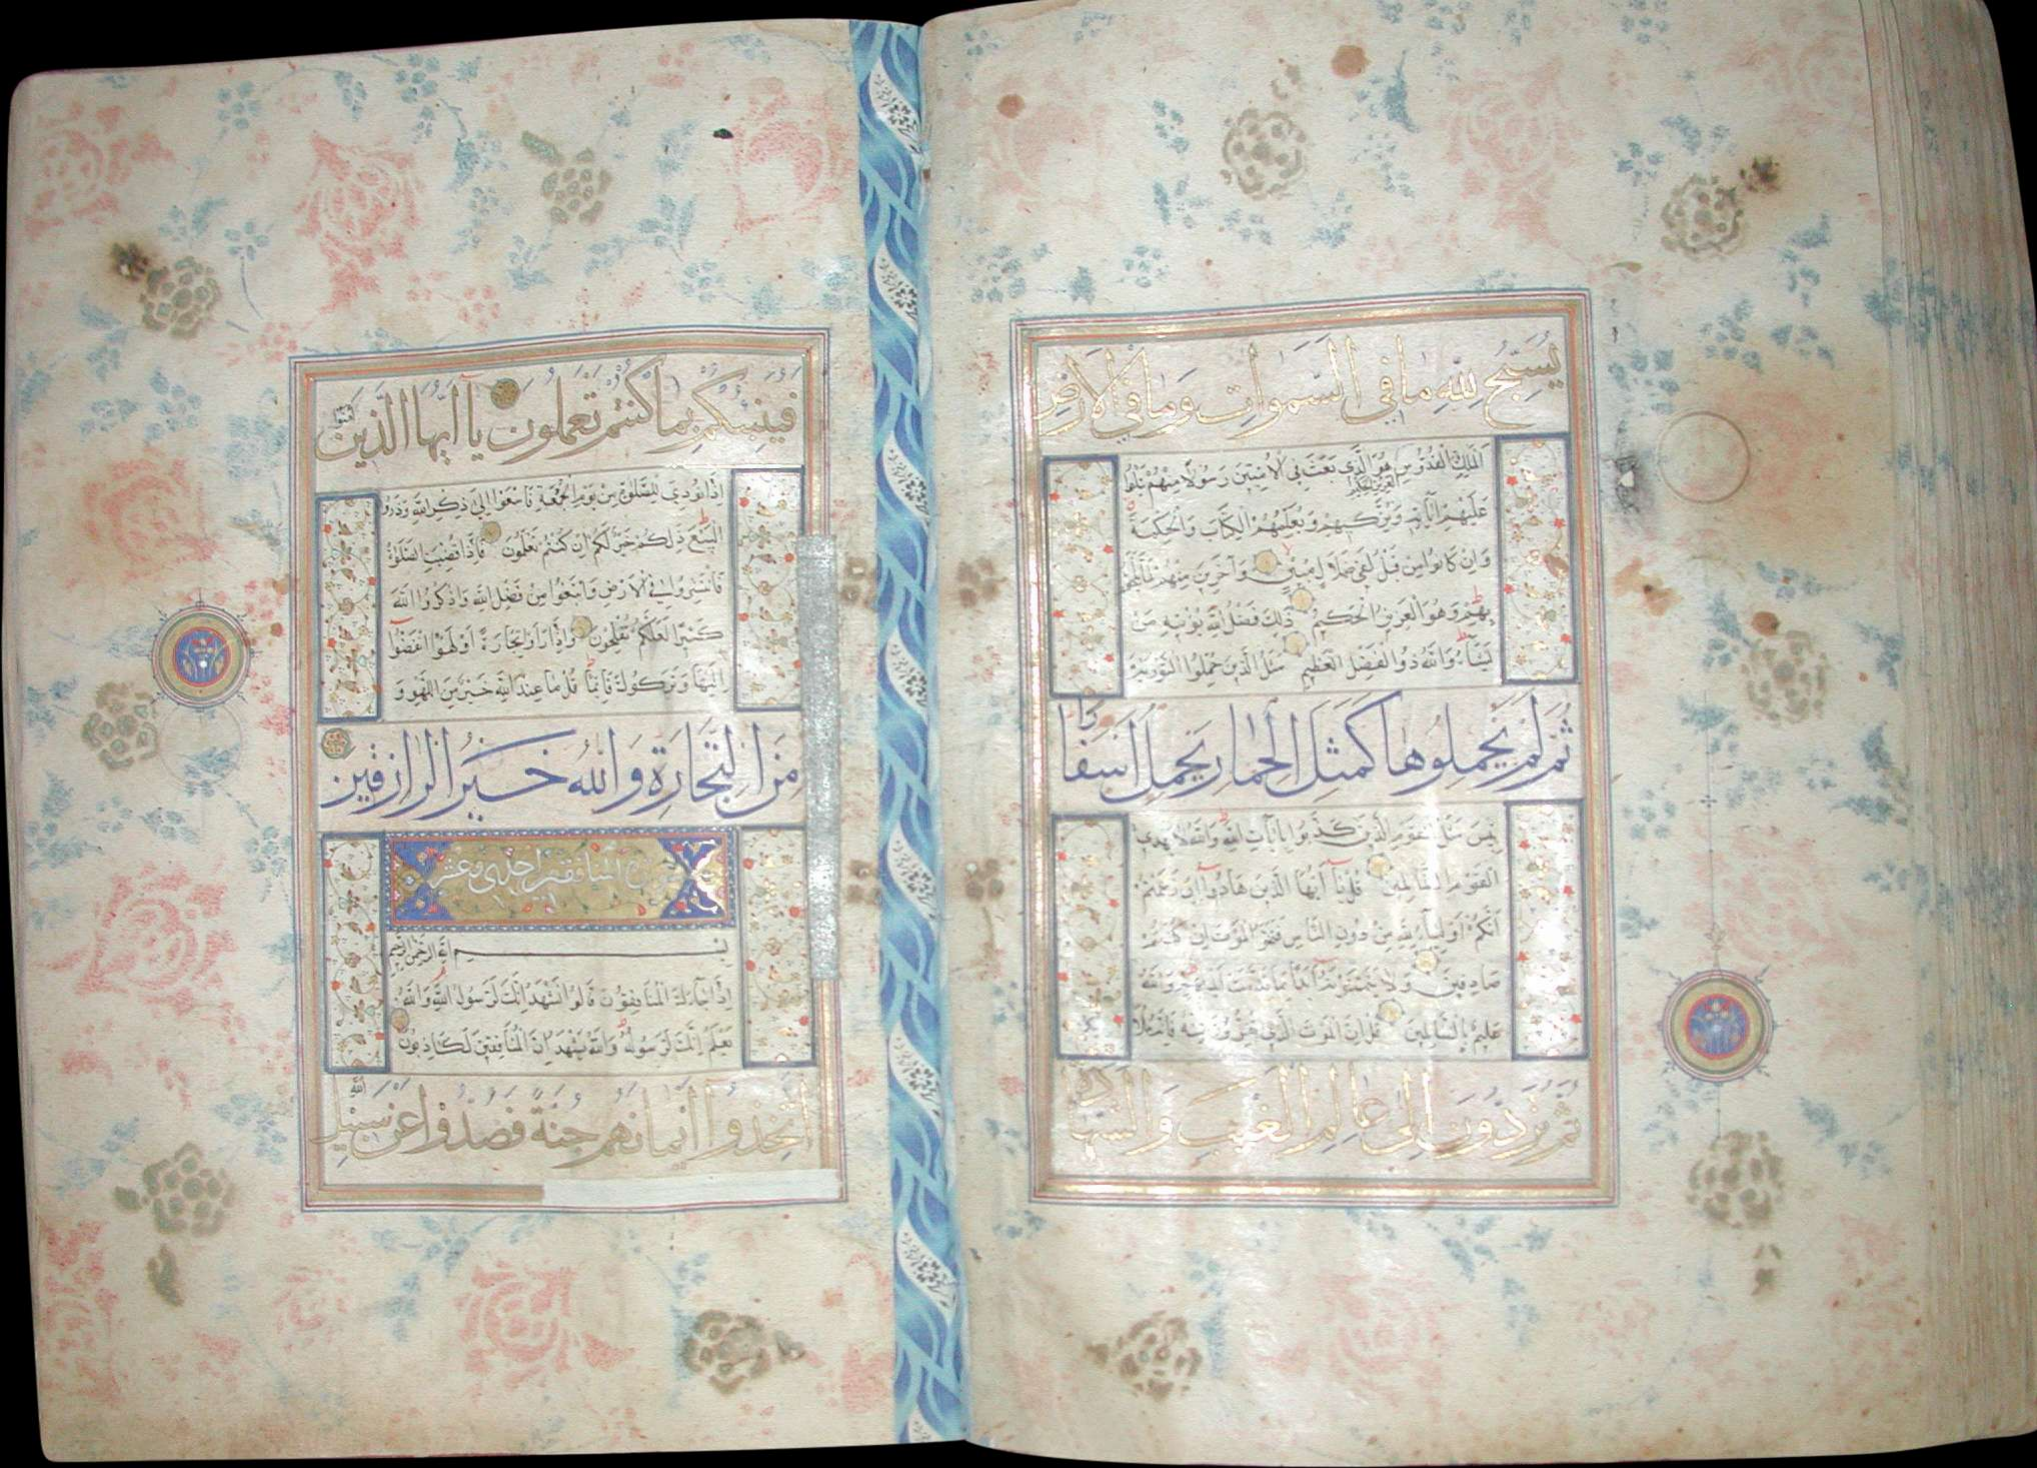 يُسَبِّحُ لِلّٰهِ مَا فِي السَّمٰوَاتِ وَمَا فِي الْاَرْضِ
الْمَلِكِ الْقُدُّوسِ هُوَ الَّذِي بَعَثَ فِي الْاُمِّيِّينَ رَسُولًا مِنْهُمْ يَتْلُوا
الْعَزِيزِ الْحَكِيمِ
عَلَيْهِمْ آيَاتِهِ وَيُزَكِّيهِمْ وَيُعَلِّمُهُمُ الْكِتَابَ وَالْحِكْمَةَ
وَاِنْ كَانُوا مِنْ قَبْلُ لَفِي ضَلَالٍ مُبِينٍ وَآخَرِينَ مِنْهُمْ لَمَّا يَلْحَقُوا
بِهِمْ وَهُوَ الْعَزِيزُ الْحَكِيمُ ذٰلِكَ فَضْلُ اللّٰهِ يُؤْتِيهِ مَنْ
يَشَاءُ وَاللّٰهُ ذُو الْفَضْلِ الْعَظِيمِ مَثَلُ الَّذِينَ حُمِّلُوا التَّوْرٰيةَ
ثُمَّ لَمْ يَحْمِلُوهَا كَمَثَلِ الْحِمَارِ يَحْمِلُ اَسْفَارًا
بِئْسَ مَثَلُ الْقَوْمِ الَّذِينَ كَذَّبُوا بِآيَاتِ اللّٰهِ وَاللّٰهُ لَا يَهْدِي
الْقَوْمَ الظَّالِمِينَ قُلْ يَا اَيُّهَا الَّذِينَ هَادُوا اِنْ زَعَمْتُمْ
اَنَّكُمْ اَوْلِيَاءُ لِلّٰهِ مِنْ دُونِ النَّاسِ فَتَمَنَّوُا الْمَوْتَ اِنْ كُنْتُمْ
صَادِقِينَ وَلَا يَتَمَنَّوْنَهُ اَبَدًا بِمَا قَدَّمَتْ اَيْدِيهِمْ وَاللّٰهُ
عَلِيمٌ بِالظَّالِمِينَ قُلْ اِنَّ الْمَوْتَ الَّذِي تَفِرُّونَ مِنْهُ فَاِنَّهُ مُلَاقِيكُمْ
ثُمَّ تُرَدُّونَ اِلٰى عَالِمِ الْغَيْبِ وَالشَّهَادَةِ
فَيُنَبِّئُكُمْ بِمَا كُنْتُمْ تَعْمَلُونَ يَا اَيُّهَا الَّذِينَ آمَنُوا
اِذَا نُودِيَ لِلصَّلٰوةِ مِنْ يَوْمِ الْجُمُعَةِ فَاسْعَوْا اِلٰى ذِكْرِ اللّٰهِ وَذَرُوا
الْبَيْعَ ذٰلِكُمْ خَيْرٌ لَكُمْ اِنْ كُنْتُمْ تَعْلَمُونَ فَاِذَا قُضِيَتِ الصَّلٰوةُ
فَانْتَشِرُوا فِي الْاَرْضِ وَابْتَغُوا مِنْ فَضْلِ اللّٰهِ وَاذْكُرُوا اللّٰهَ
كَثِيرًا لَعَلَّكُمْ تُفْلِحُونَ وَاِذَا رَاَوْا تِجَارَةً اَوْ لَهْوًا انْفَضُّوا
اِلَيْهَا وَتَرَكُوكَ قَائِمًا قُلْ مَا عِنْدَ اللّٰهِ خَيْرٌ مِنَ اللَّهْوِ وَ
مِنَ التِّجَارَةِ وَاللّٰهُ خَيْرُ الرَّازِقِينَ
المنافقين احدى وعشر
بِسْمِ اللّٰهِ الرَّحْمٰنِ الرَّحِيمِ
اِذَا جَاءَكَ الْمُنَافِقُونَ قَالُوا نَشْهَدُ اِنَّكَ لَرَسُولُ اللّٰهِ وَاللّٰهُ
يَعْلَمُ اِنَّكَ لَرَسُولُهُ وَاللّٰهُ يَشْهَدُ اِنَّ الْمُنَافِقِينَ لَكَاذِبُونَ
اِتَّخَذُوا اَيْمَانَهُمْ جُنَّةً فَصَدُّوا عَنْ سَبِيلِ اللّٰهِ